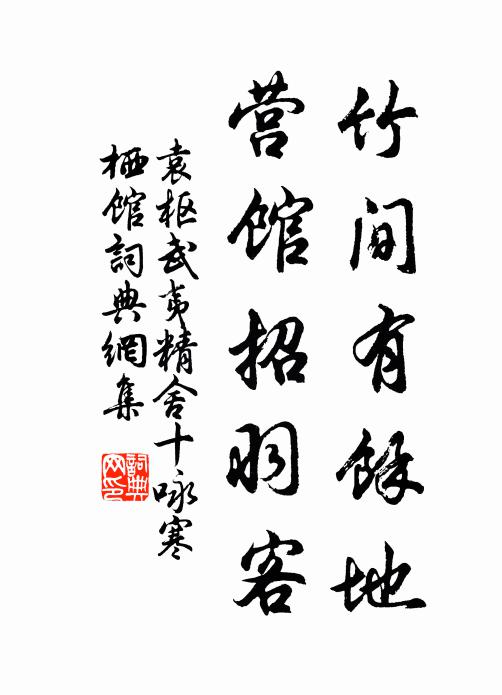 竹间有余地
营馆招羽客
袁枢武夷精舍十咏寒
栖馆词典网集
词典网印